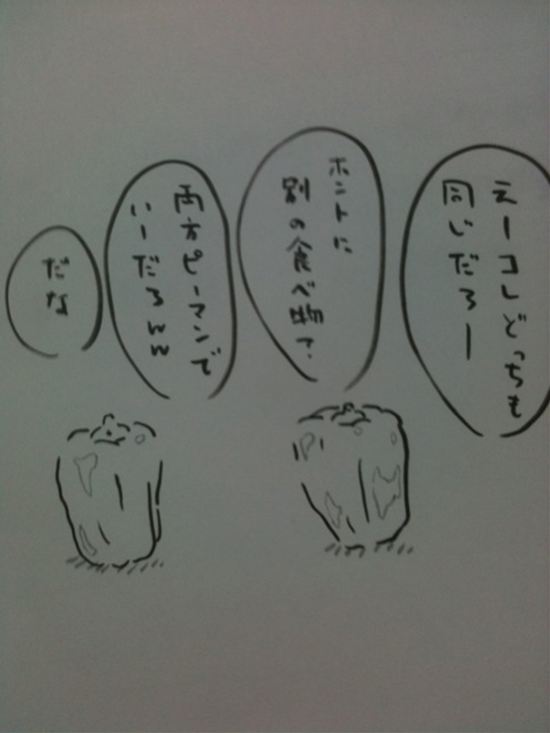 えーコレどっちも
同じだろー
ホントに
別の食べ物?
両方ピーマンで
いーだろww
だな